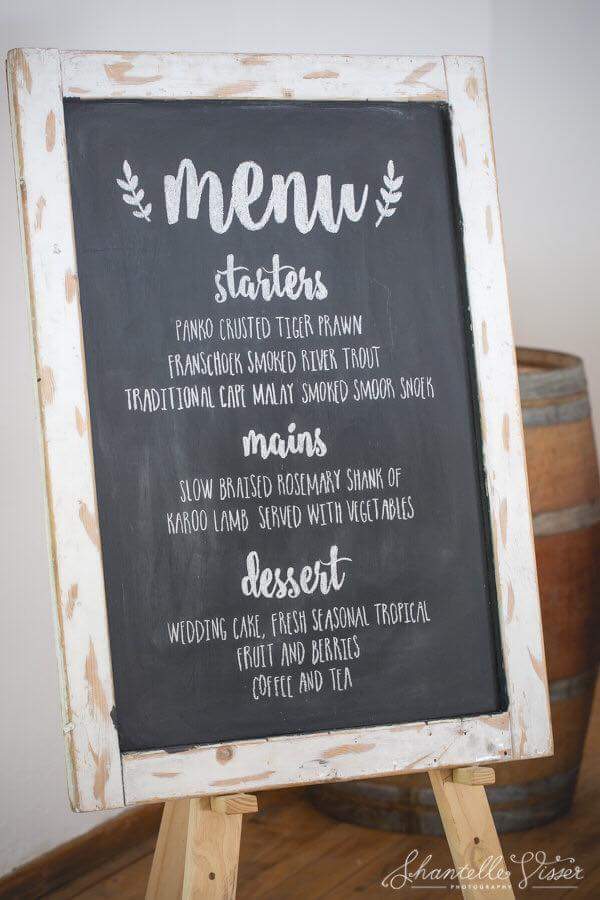 menu
starters
PANKO CRUSTED TIGER PRAWN
FRANSCHOEK SMOKED RIVER TROUT
TRADITIONAL CAPE MALAY SMOKED SMOOR SNOEK
mains
SLOW BRAISED ROSEMARY SHANK OF
KAROO LAMB SERVED WITH VEGETABLES
dessert
WEDDING CAKE, FRESH SEASONAL TROPICAL
FRUIT AND BERRIES
COFFEE AND TEA
Shantelle Visser
PHOTOGRAPHY